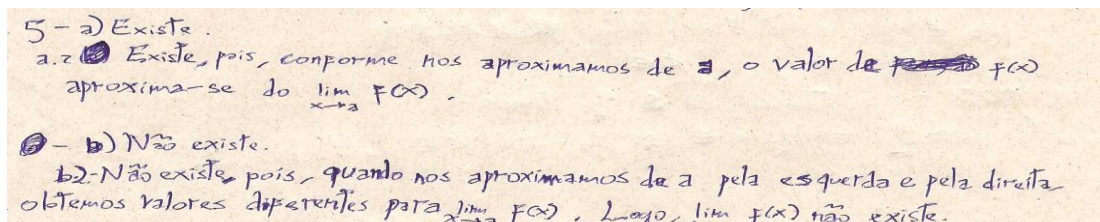 5 - a) Existe.
a.2 Existe, pois, conforme nos aproximamos de a, o valor de f(x)
aproxima-se do lim x→a f(x).
- b) Não existe.
b2-Não existe, pois, quando nos aproximamos de a pela esquerda e pela direita
obtemos valores diferentes para lim x→a f(x). Logo, lim f(x) não existe.